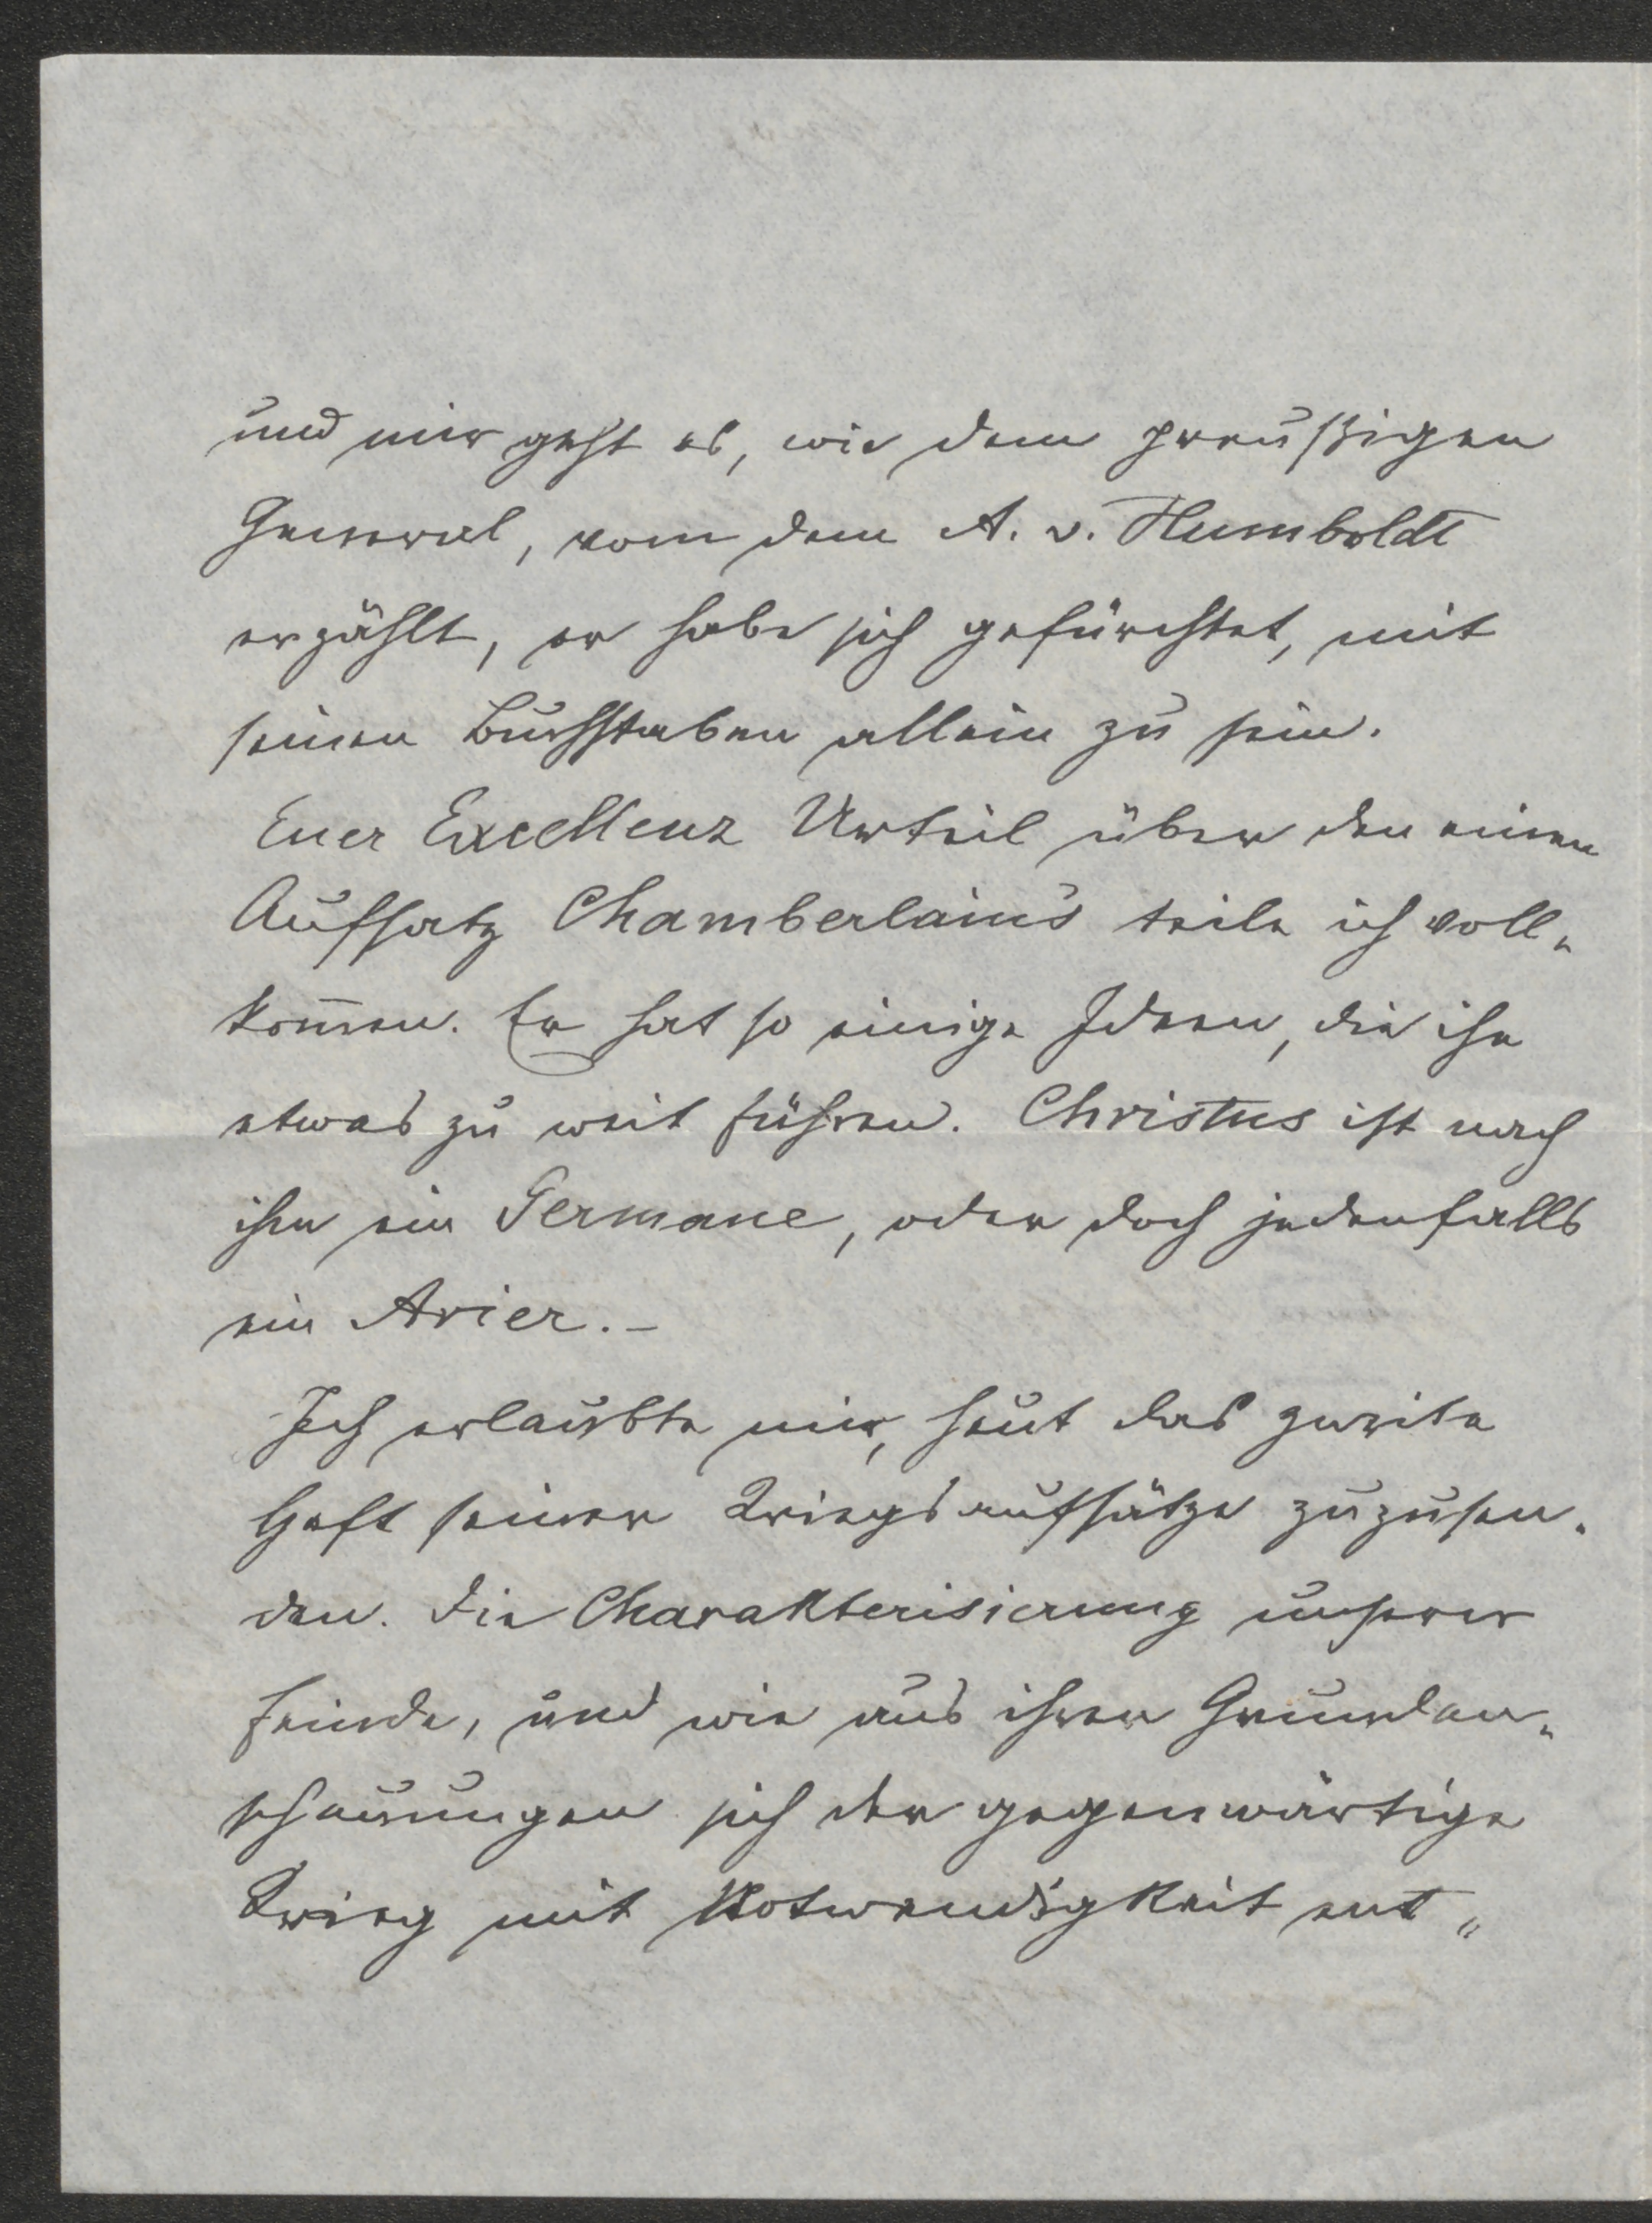 und mir geht es, wie dem preußigen
General, vom dem A. v. Humboldt
erzählt, er habe sich gefürchtet, mit
seinen Buchstaben allein zu sein.
Euer Excellenz Urteil über den einen
Aufsatz Chamberlain's teile ich voll-
kom̅en. Er hat so einige Ideen, die ihn
etwas zu weit führen. Christus ist nach
ihm ein Germane, oder doch jedenfalls
ein Arier. –
Ich erlaubte mir, heut das zweite
Heft seiner Kriegsaufsätze zuzusen-
den. Die Charakterisierung unserer
Feinde, und wie aus ihren Grundan-
schauungen sich der gegenwärtige
Krieg mit Notwendigkeit ent-